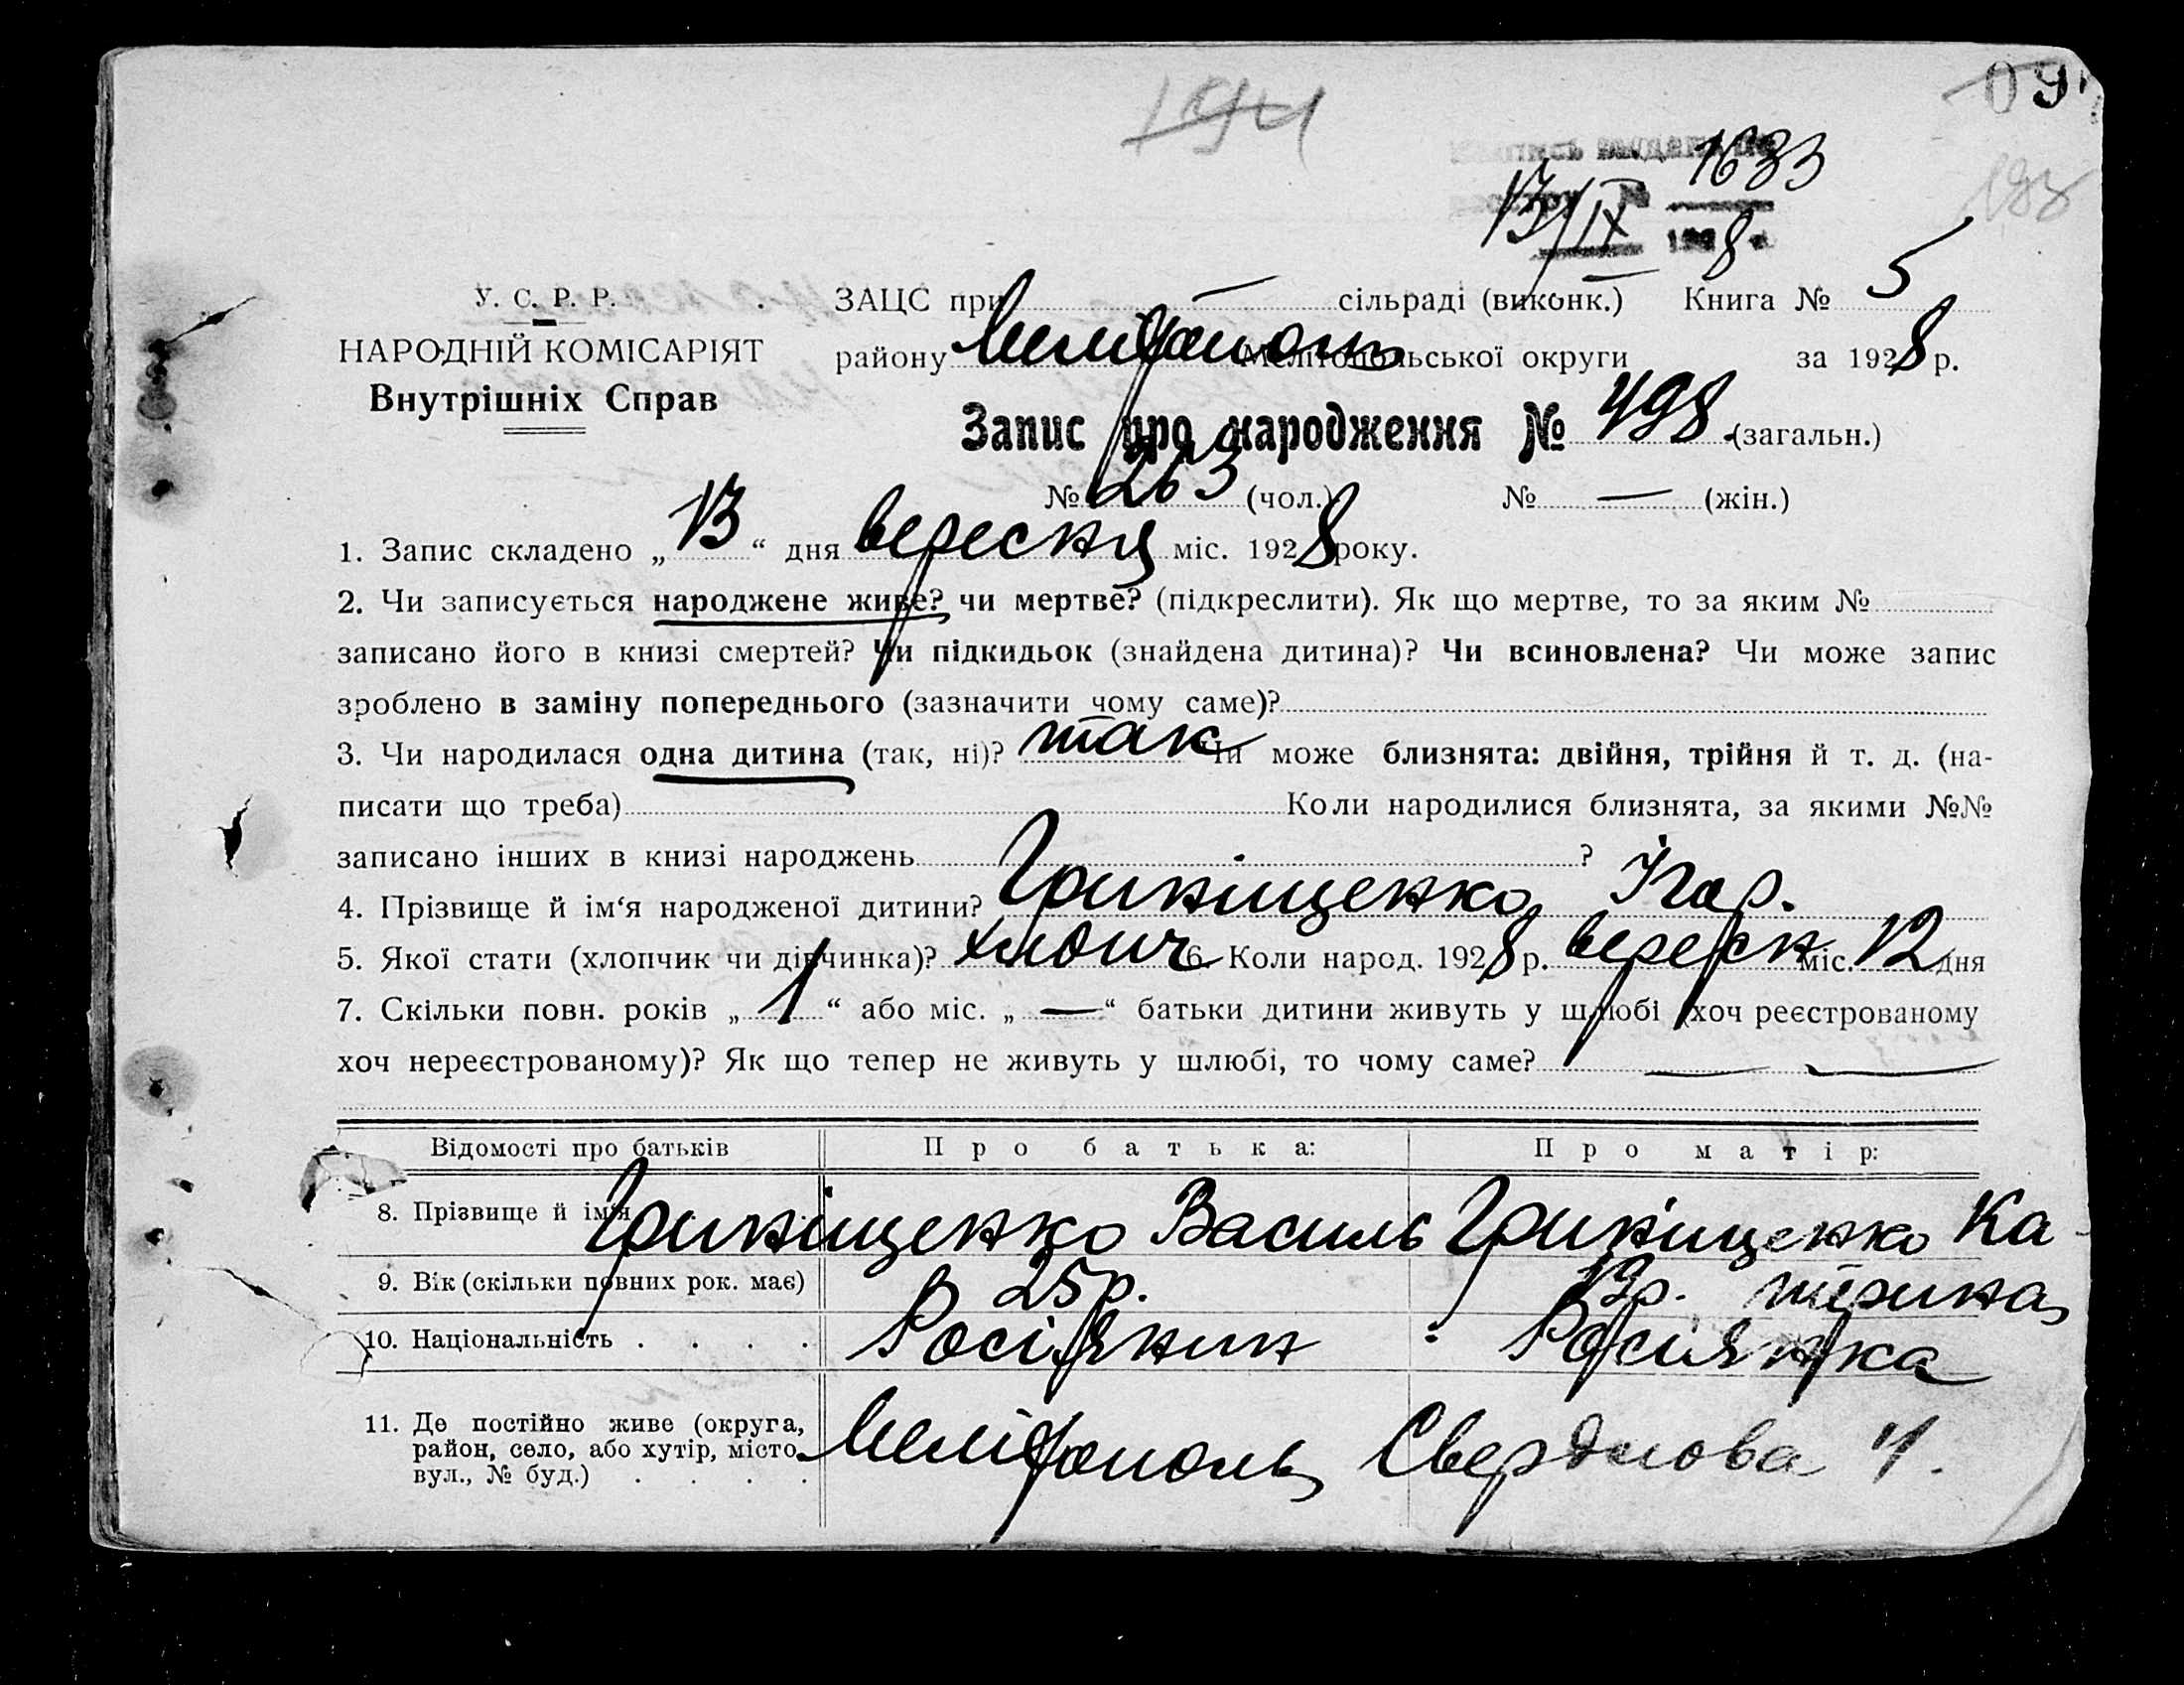 194
1633
13/IX 1928
У. С. Р. Р.
ЗАЦС при — сільраді (виконк.) Книга № 5
НАРОДНІЙ КОМІСАРІЯТ
району Мелітополь Мелітопольської округи за 1928 р.
Внутрішніх Справ
Запис про народження № 498 (загальн.)
№ 263 (чол.) № — (жін.)
1. Запис складено „13“ дня вересня міс. 1928 року.
2. Чи записується народжене живе? чи мертве? (підкреслити). Як що мертве, то за яким №
записано його в книзі смертей? Чи підкидьок (знайдена дитина)? Чи всиновлена? Чи може запис
зроблено в заміну попереднього (зазначити чому саме)?
3. Чи народилася одна дитина (так, ні)? так Чи може близнята: двійня, трійня й т. д. (на-
писати що треба) Коли народилися близнята, за якими №№
записано інших в книзі народжень ?
4. Прізвище й ім‘я народженої дитини? Гриніщенко Ігор.
5. Якої стати (хлопчик чи дівчинка)? хлопч 6. Коли народ. 1928 р. вересн міс. 12 дня
7. Скільки повн. років „1“ або міс. „—“ батьки дитини живуть у шлюбі (хоч реєстрованому
хоч нереєстрованому)? Як що тепер не живуть у шлюбі, то чому саме? — —
Відомості про батьків Про батька: Про матір:
8. Прізвище й ім‘я Гриніщенко Василь Гриніщенко Ка-
9. Вік (скільки повних рок. має) 25р. 19р. терина
10. Національність . . . . Росіянин Росіянка
11. Де постійно живе (округа,
район, село, або хутір, місто
вул., № буд.) . . . . Мелітополь Свердлова 4.